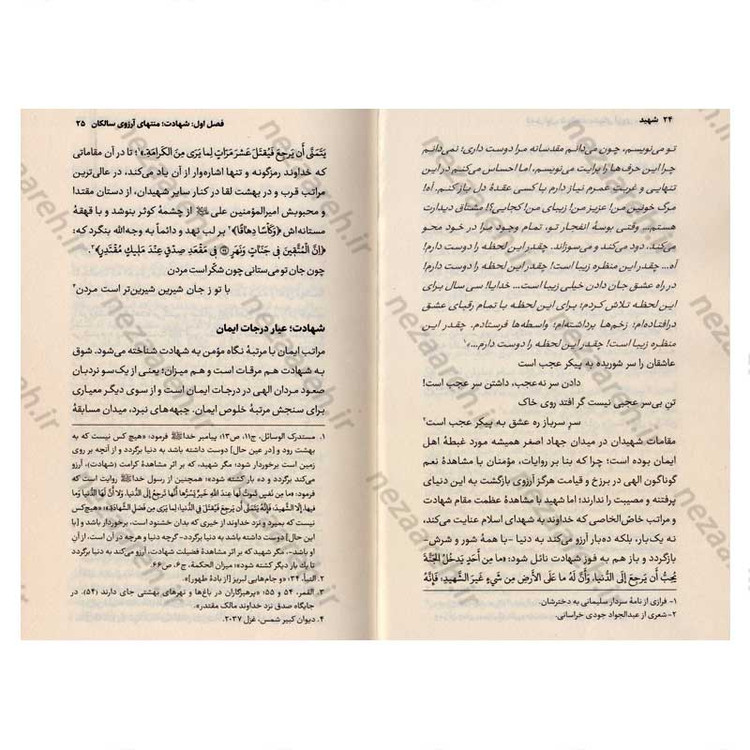 ۲۴ شهید
تو می‌نویسم، چون می‌دانم مقدسانه مرا دوست داری؛ نمی‌دانم
چرا این حرف‌ها را برایت می‌نویسم، اما احساس می‌کنم در این
تنهایی و غربت عمرم نیاز دارم با کسی عقدهٔ دل باز کنم. اما
مرگ خونین من! عزیز من! زیبای من! کجایی؟! مشتاق دیدارت
هستم... وقتی بوسهٔ انفجار تو، تمام وجود مرا در خود محو
می‌کند، دود می‌کند و می‌سوزاند. چقدر این لحظه را دوست دارم!
آه... چقدر این منظره زیبا است! چقدر این لحظه را دوست دارم!
در راه عشق جان دادن خیلی زیبا است... خدایا! سی سال برای
این لحظه تلاش کردم؛ برای این لحظه با تمام رقبای عشق
درافتاده‌ام؛ زخم‌ها برداشته‌ام؛ واسطه‌ها فرستادم. چقدر این
منظره زیبا است! چقدر این لحظه را دوست دارم...»۱
عاشقان را سر شوریده به پیکر عجب است
دادن سر نه‌عجب، داشتن سر عجب است!
تنِ بی‌سر عجبی نیست گر افتد روی خاک
سرِ سرباز ره عشق به پیکر عجب است۲
مقامات شهیدان در میدان جهاد اصغر همیشه مورد غبطهٔ اهل
ایمان بوده است؛ چرا که بنا بر روایات، مؤمنان با مشاهدهٔ نعم
گوناگون الهی در برزخ و قیامت هرگز آرزوی بازگشت به این دنیای
پرفتنه و مصیبت را ندارند؛ اما شهید با مشاهدهٔ عظمت مقام شهادت
و مراتب خاص‌الخاصی که خداوند به شهدای اسلام عنایت می‌کند،
نه یک‌بار، بلکه ده‌بار آرزو می‌کند به دنیا -با همهٔ شور و شرش-
بازگردد و باز هم به فوز شهادت نائل شود: «ما مِن أَحَدٍ يَدخُلُ الجَنَّةَ
يُحِبُّ أَن يَرجِعَ إلَى الدُّنيا، وَأَنَّ لَهُ ما عَلَى الأَرضِ مِن شَيءٍ غَيرَ الشَّهيدِ، فَإنَّهُ
۱- فرازی از نامهٔ سردار سلیمانی به دخترشان.
۲- شعری از عبدالجواد جودی خراسانی.
فصل اول: شهادت؛ منتهای آرزوی سالکان ۲۵
يَتَمَنّى أَن يَرجِعَ فَيُقتَلَ عَشرَ مَرّاتٍ لِما يَرى مِنَ الكَرامَةِ»۱؛ تا در آن مقاماتی
که خداوند رمزگونه و تنها اشاره‌وار از آن یاد می‌کند، در عالی‌ترین
مراتب قرب و در بهشت لقا در کنار سایر شهیدان، از دستان مقتدا
و محبوبش امیرالمؤمنین علی ﷷ از چشمهٔ کوثر بنوشد و با قهقهٔ
مستانه‌اش ﴿وَكَأْسًا دِهاقًا﴾۲ بر لب نهد و دائمه به وجه‌الله بنگرد که؛
﴿إِنَّ الْمُتَّقِينَ فِي جَنَّاتٍ وَنَهَرٍ ۝ فِي مَقْعَدِ صِدْقٍ عِنْدَ مَلِيكٍ مُقْتَدِرٍ﴾۳.
چون جان تو می‌ستانی چون شکّر است مردن
با تو ز جان شیرین شیرین‌تر است مردن۴
شهادت؛ عیار درجات ایمان
مراتب ایمان با مرتبهٔ نگاه مؤمن به شهادت شناخته می‌شود. شوق
به شهادت هم مرقات است و هم میزان؛ یعنی از یک‌سو نردبان
صعود مردان الهی در درجات ایمان است و از سوی دیگر معیاری
برای سنجش مرتبهٔ خلوص ایمان. جبهه‌های نبرد، میدان مسابقهٔ
۱. مستدرک الوسائل، ج۱۱، ص۱۳؛ پیامبر خدا ﷺ فرمود: «هیچ کس نیست که به
بهشت رود و [در عین حال] دوست داشته باشد به دنیا برگردد و از آنچه بر روی
زمین است برخوردار شود؛ مگر شهید، که بر اثر مشاهدهٔ کرامت (شهادت)، آرزو
می‌کند برگردد و ده بار کشته شود»؛ همچنین از رسول خدا ﷺ روایت است که
فرمود: «ما مِن نَفسٍ تَموتُ لَها عِندَ اللَّهِ خَيرٌ يَسُرُّها أَنَّها تَرجِعُ إلَى الدُّنيا وَلا أَنَّ لَهَا الدُّنيا وَما
فيها إلَّا الشَّهيدَ، فَإنَّهُ يَتَمَنّى أَن يَرجِعَ فَيُقتَلَ فِي الدُّنيا، لِما يَرى مِن فَضلِ الشَّهادَةِ»؛ «هیچ‌کس
نیست که بمیرد و نزد خداوند از خیری که بدان خشنود است، برخوردار باشد و [با
این حال] دوست داشته باشد به دنیا برگردد- گرچه دنیا و هرچه در آن است، از آن
او باشد-، مگر شهید که بر اثر مشاهدهٔ فضیلت شهادت، آرزو می‌کند به دنیا برگردد
تا یک بار دیگر کشته شود»؛ میزان الحکمة، ج۶، ص۶۶.
۲. النبأ، ۳۴؛ «و جام‌هایی لبریز [از بادهٔ طهور]».
۳. القمر، ۵۴ و ۵۵؛ «پرهیزگاران در باغ‌ها و نهرهای بهشتی جای دارند (۵۴)، در
جایگاه صدق نزد خداوند مالک مقتدر».
۴. دیوان کبیر شمس، غزل ۲۰۳۷.
nezaareh.ir